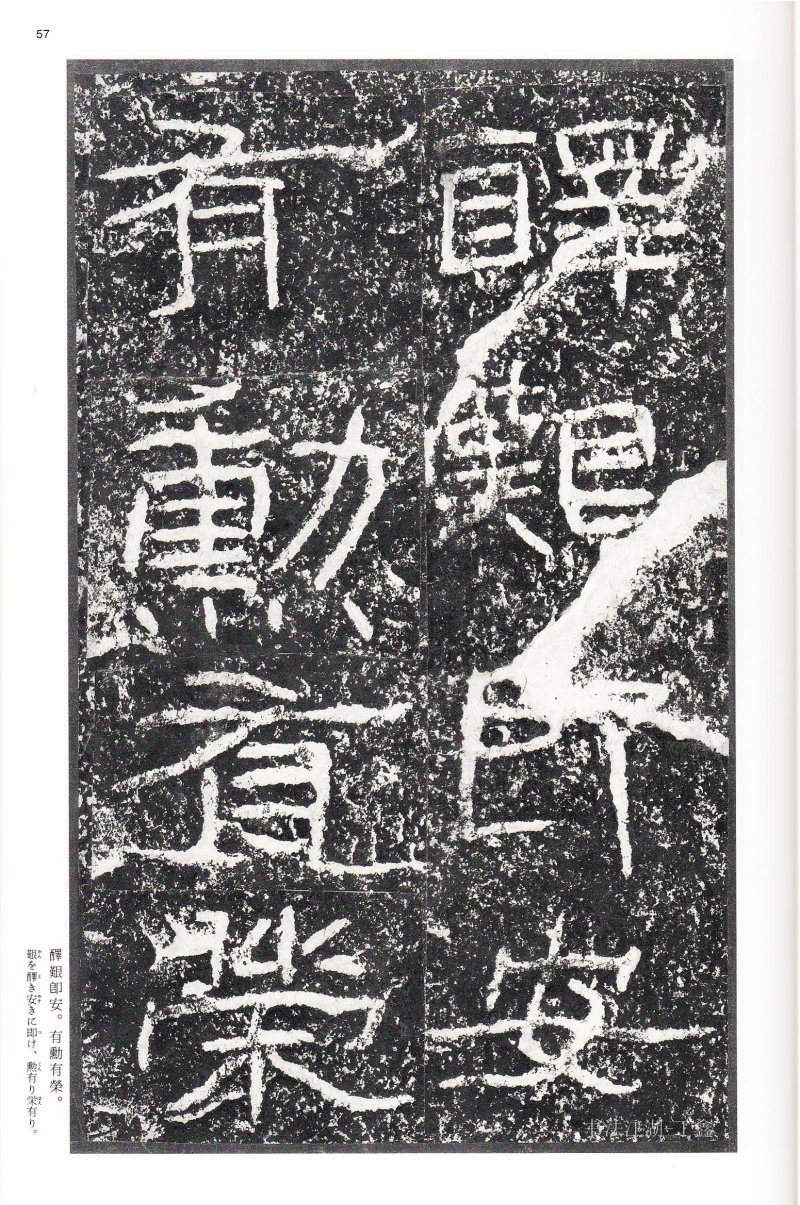 57
醳艱即安
有勳有榮
醳艱卽安。有勳有榮。
艱を醳き安きに即け、勳有り栄有り。
书法江湖